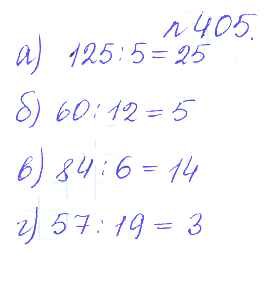 №405.
а) 125:5=25
б) 60:12=5
в) 84:6=14
г) 57:19=3